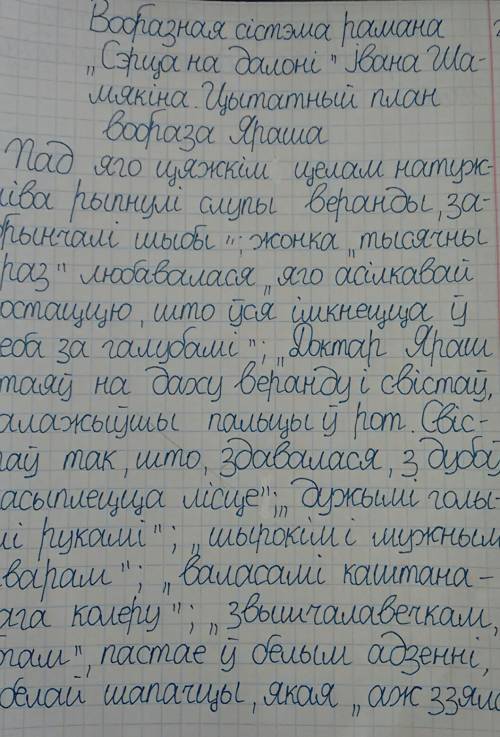 Вобразная сістэма рамана
„Сэрца на далоні" Івана Ша-
мякіна. Цытатны план
вобраза Яраша
Пад яго цяжкім целам натуж-
ліва рыпнулі слупы веранды, за-
брынчалі шыбы"; жонка „тысячны
раз" любавалася „яго асілкавай
постаццю, што ўся імкнецца ў
неба за галубамі"; „Доктар Яраш
стаяў на даху веранду і свістаў,
залажыўшы пальцы ў рот. Свіс-
таў так, што, здавалася, з дубу
пасыплецца лісце"; „дужымі голы-
мі рукамі"; „шырокім і мужным
тварам"; „валасамі каштана-
вага колеру"; „звышчалавечкам,
там", пастае ў белым адзенні,
белай шапачцы, якая „аж ззяла